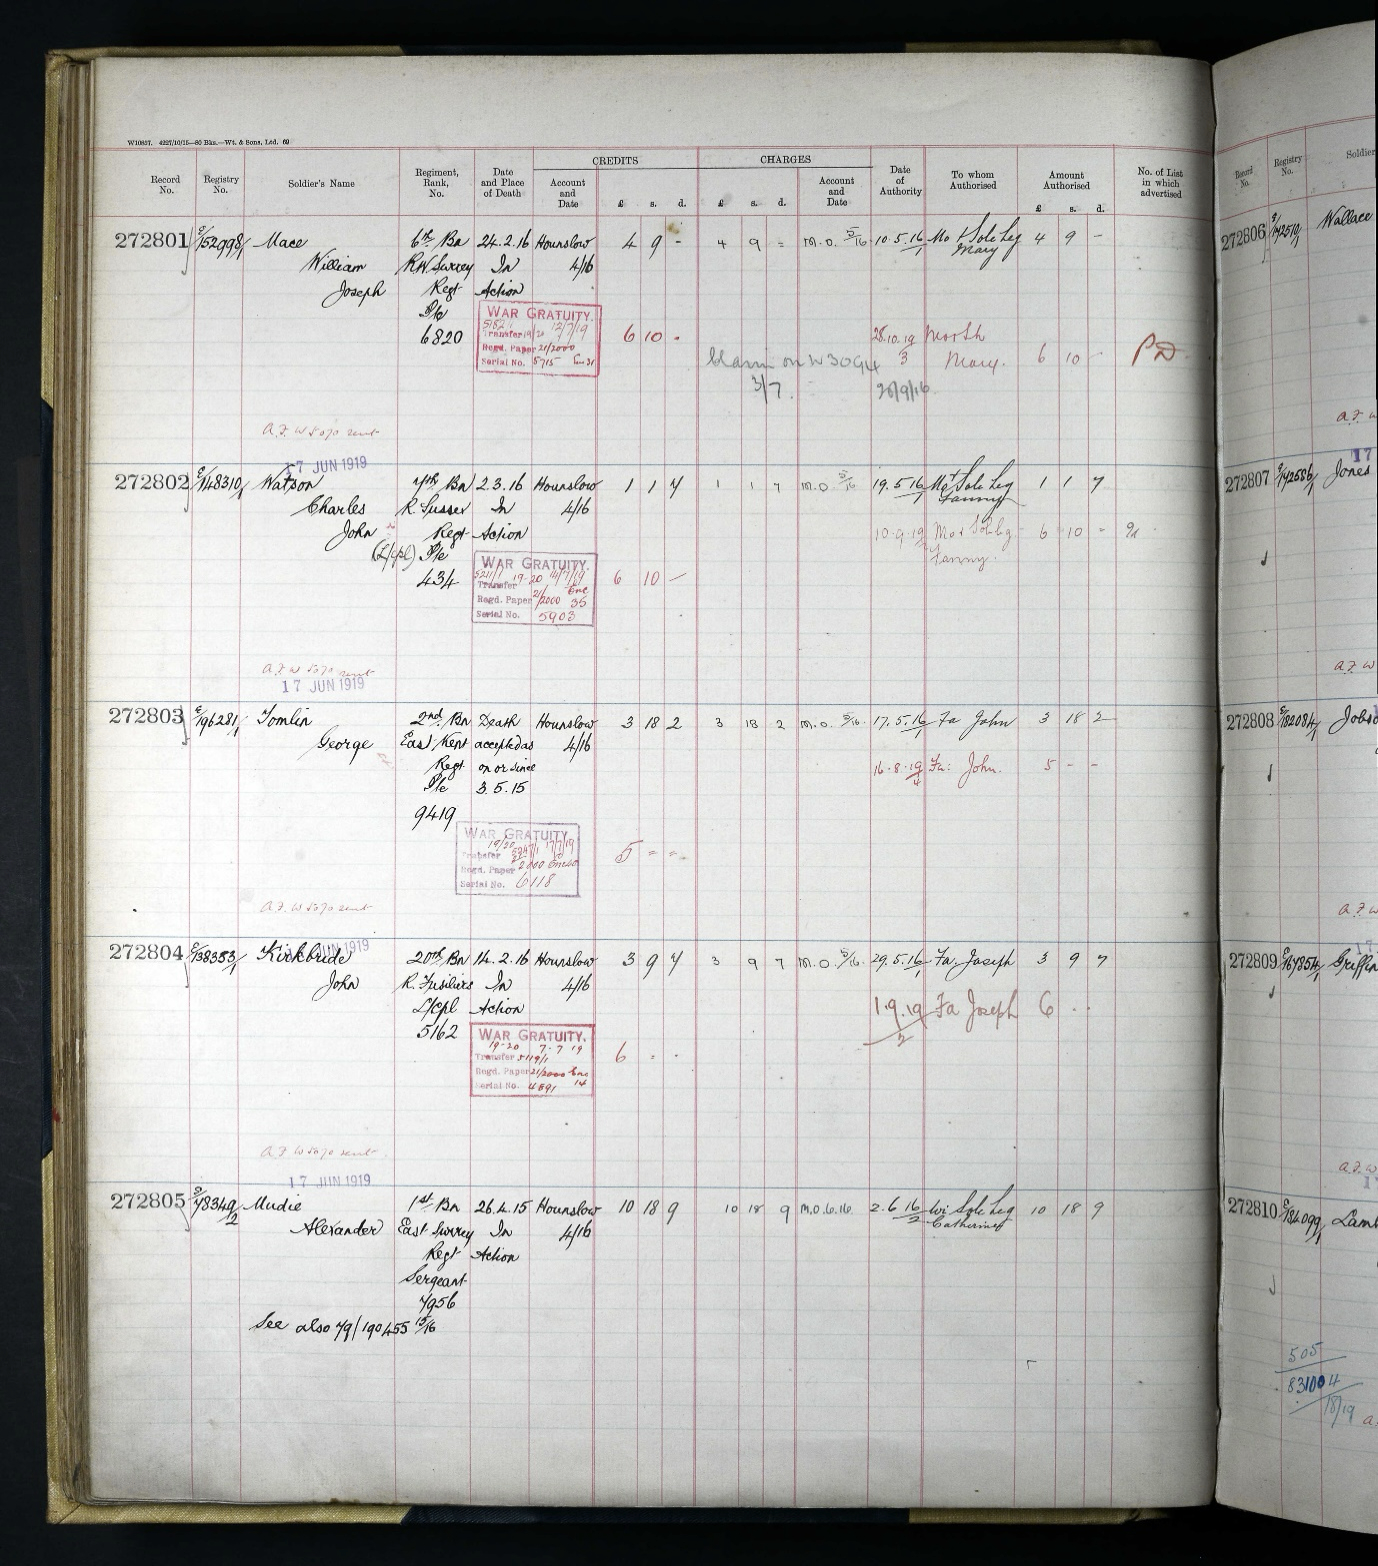 W10857. 4227/10/15—80 Bks.—Wt. & Sons, Ltd. 69
Record No.
Registry No.
Soldier's Name
Regiment, Rank, No.
Date and Place of Death
CREDITS
Account and Date
£ s. d.
CHARGES
£ s. d.
Account and Date
Date of Authority
To whom Authorised
Amount Authorised
£ s. d.
No. of List in which advertised
272801 E/152998/1 Mace 6th Bn 24.2.16 Hounslow 4 9 - 4 9 = M.O. 5/16 10.5.16/1 Mo & Sole Leg 4 9 -
William R W Surrey In 4/16 Mary
Joseph Regt Action
Pte
6820
WAR GRATUITY. 6 10 - 28.10.19/3 Mary. 6 10 -
12/7/19
Transfer 19/20
Regd. Paper 21/2000
Serial No. 5715
Claim on W 3094
3/7. 26/9/16
A.F. W 5070 sent
17 JUN 1919
272802 E/148310/1 Watson 7th Bn 2.3.16 Hounslow 1 1 7 1 1 7 M.O. 5/16 19.5.16/1 Mo & Sole Leg 1 1 7
Charles R. Sussex In 4/16 Fanny
John Regt Action 10.9.19 Mo & Sole Leg 6 10 -
(L/cpl) Pte Fanny.
434
WAR GRATUITY. 6 10 —
5211/1 19-20 14/7/19
Transfer
Regd. Paper 21/2000 Enc 35
Serial No. 5903
A.F. W 5070 sent
17 JUN 1919
272803 E/196281/1 Tomlin 2nd Bn Death Hounslow 3 18 2 3 18 2 M.O. 5/16 17.5.16/1 Fa John 3 18 2
George East Kent accepted as 4/16
Regt on or since 16.8.19/4 Fa: John. 5 - -
Pte 3.5.15
9419
WAR GRATUITY. 5 = =
19/20 17/7/19
Transfer
Regd. Paper 2000
Serial No. 6118
A.F. W 5070 sent
17 JUN 1919
272804 E/138353/1 Kirkbride 20th Bn 14.2.16 Hounslow 3 9 7 3 9 7 M.O. 5/16 29.5.16/1 Fa. Joseph 3 9 7
John R. Fusiliers In 4/16
L/cpl Action 1.9.19/2 Fa Joseph 6 . .
5162
WAR GRATUITY. 6 = -
19-20 7.7.19
Transfer 5119/1
Regd. Paper 21/2000 Enc 14
Serial No. 4891
A.F. W 5070 sent
17 JUN 1919
272805 E/78349/2 Mudie 1st Bn 26.4.15 Hounslow 10 18 9 10 18 9 M.O. 6.16 2.6.16/2 Wi Sole Leg 10 18 9
Alexander East Surrey In 4/16 Catherine
Regt Action
Sergeant
7956
See also 79/190455 15/16
Record No.
Registry No.
Soldier
272806 Wallace
A.F. W
17
272807 Jones
A.F. W
272808 E/182084/1 Jobs
A.F. W
17
272809 E/167854/1 Griffin
A.F. W
1
272810 E/184099/1 Lamb
505
831004
18/19